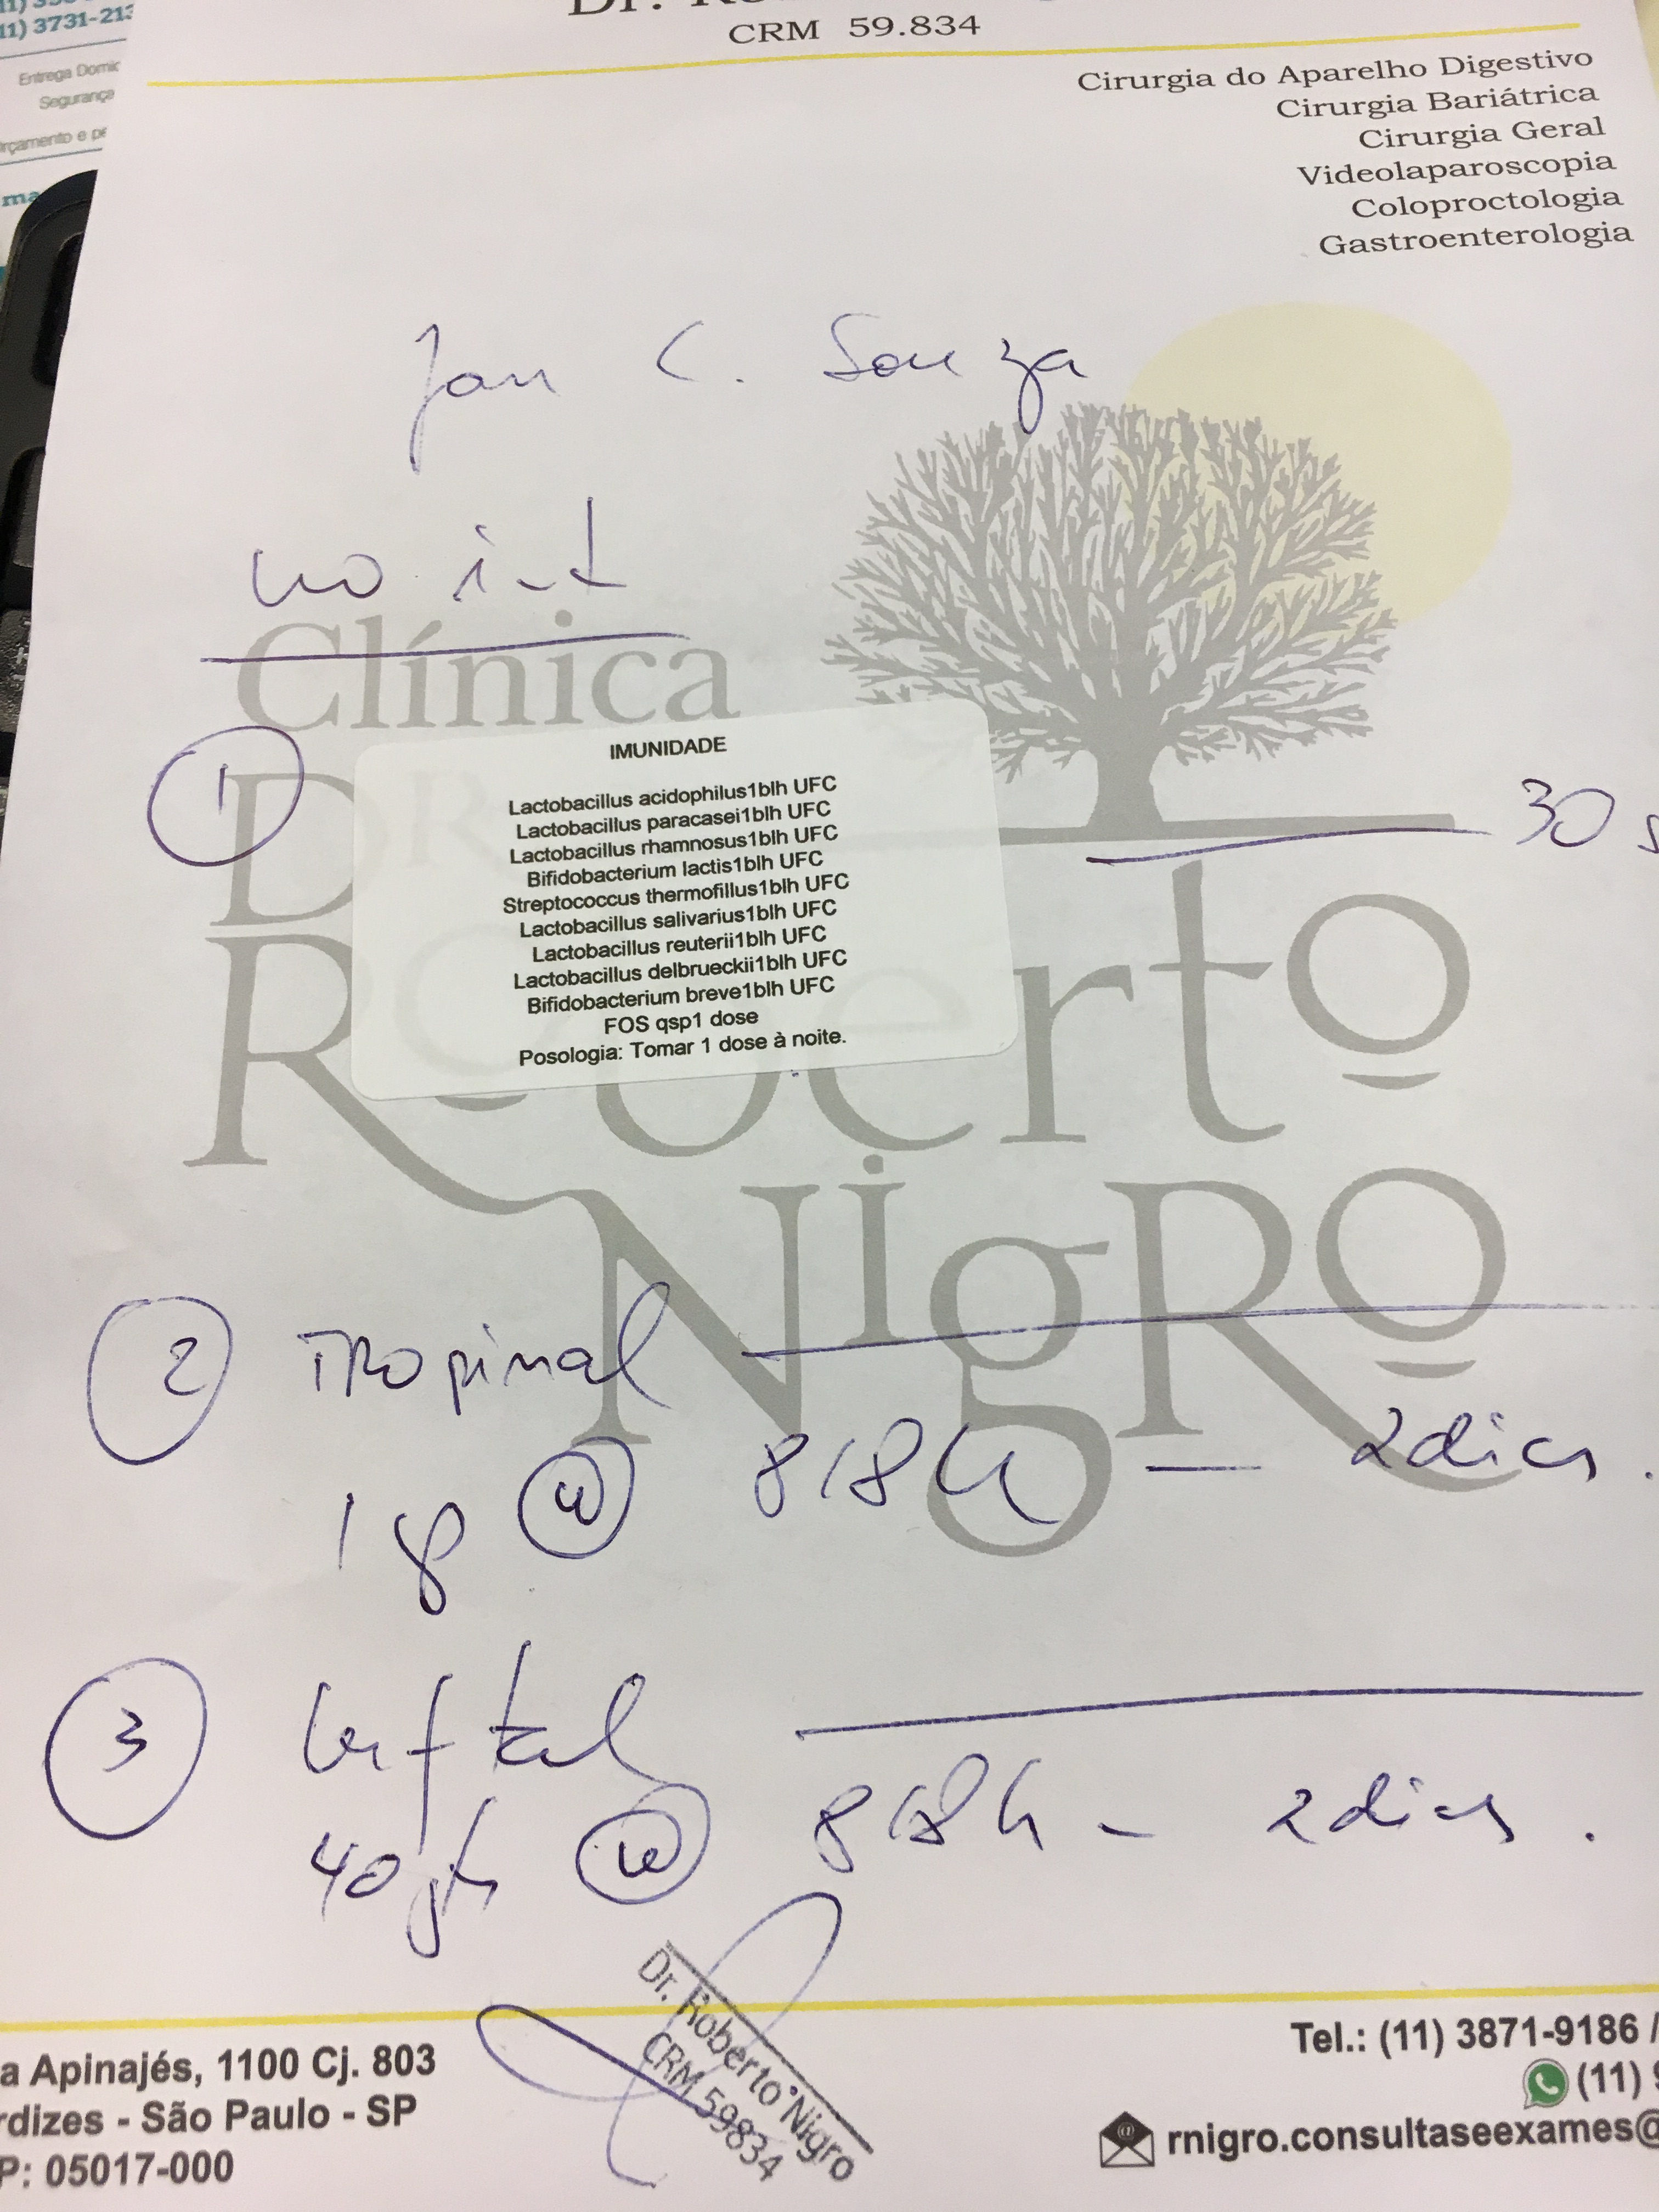 11) 3731-213
Entrega Domic
Segurança
rçamento e pe
ma
CRM 59.834
Cirurgia do Aparelho Digestivo
Cirurgia Bariátrica
Cirurgia Geral
Videolaparoscopia
Coloproctologia
Gastroenterologia
C. Souza
uo int
Clínica
DR
Roberto
Nigro
1
IMUNIDADE
Lactobacillus acidophilus1blh UFC
Lactobacillus paracasei1blh UFC
Lactobacillus rhamnosus1blh UFC
Bifidobacterium lactis1blh UFC
Streptococcus thermofillus1blh UFC
Lactobacillus salivarius1blh UFC
Lactobacillus reuterii1blh UFC
Lactobacillus delbrueckii1blh UFC
Bifidobacterium breve1blh UFC
FOS qsp1 dose
Posologia: Tomar 1 dose à noite.
30 s
2 Tropinal
8/8h — 2 dias.
3 Luftal
40 gts 8/8h - 2 dias.
Dr. Roberto Nigro
CRM 59834
a Apinajés, 1100 Cj. 803
rdizes - São Paulo - SP
P: 05017-000
Tel.: (11) 3871-9186 /
(11) 9
rnigro.consultaseexames@